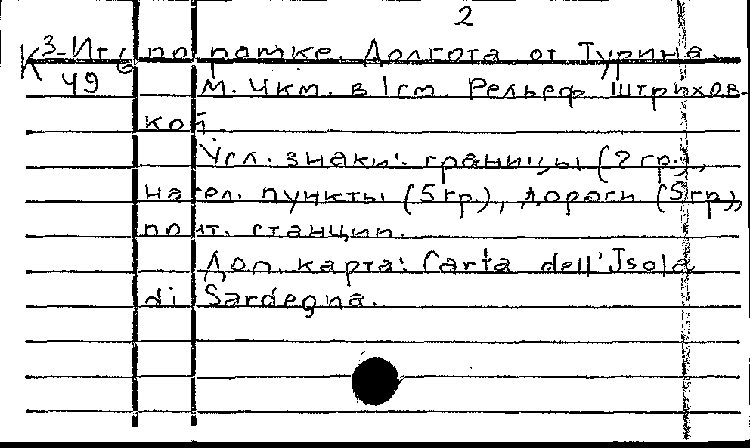 2
К 3-Иг6 по рамке. Долгота от Турина.
49 М. 4км. в 1см. Рельеф штрихов-
кой.
Усл. знаки: границы (2 гр.),
насел. пункты (5гр), дороги (5гр),
почт. станции.
Доп. карта: Carta dell'Jsola
di Sardegna.